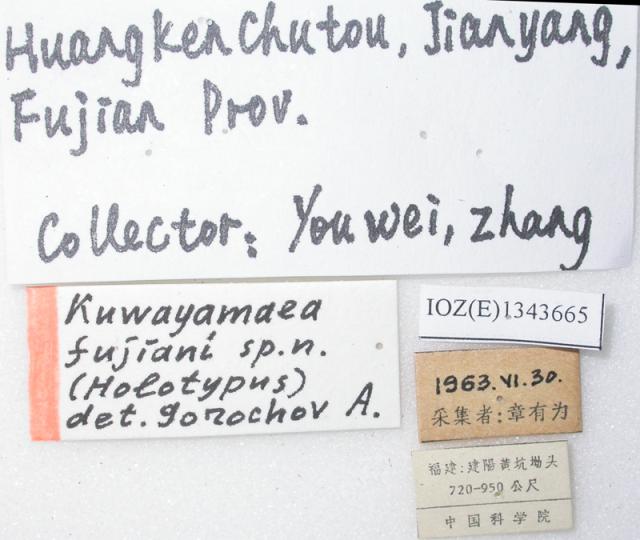 Huangkenchutou, Jianyang,
Fujian Prov.
Collector: Youwei, zhang
Kuwayamaea
fujiani sp.n.
(Holotypus)
det. gorochov A.
IOZ(E)1343665
1963.VI.30.
采集者:章有为
福建:建陽黃坑坳头
720-950公尺
中国科学院